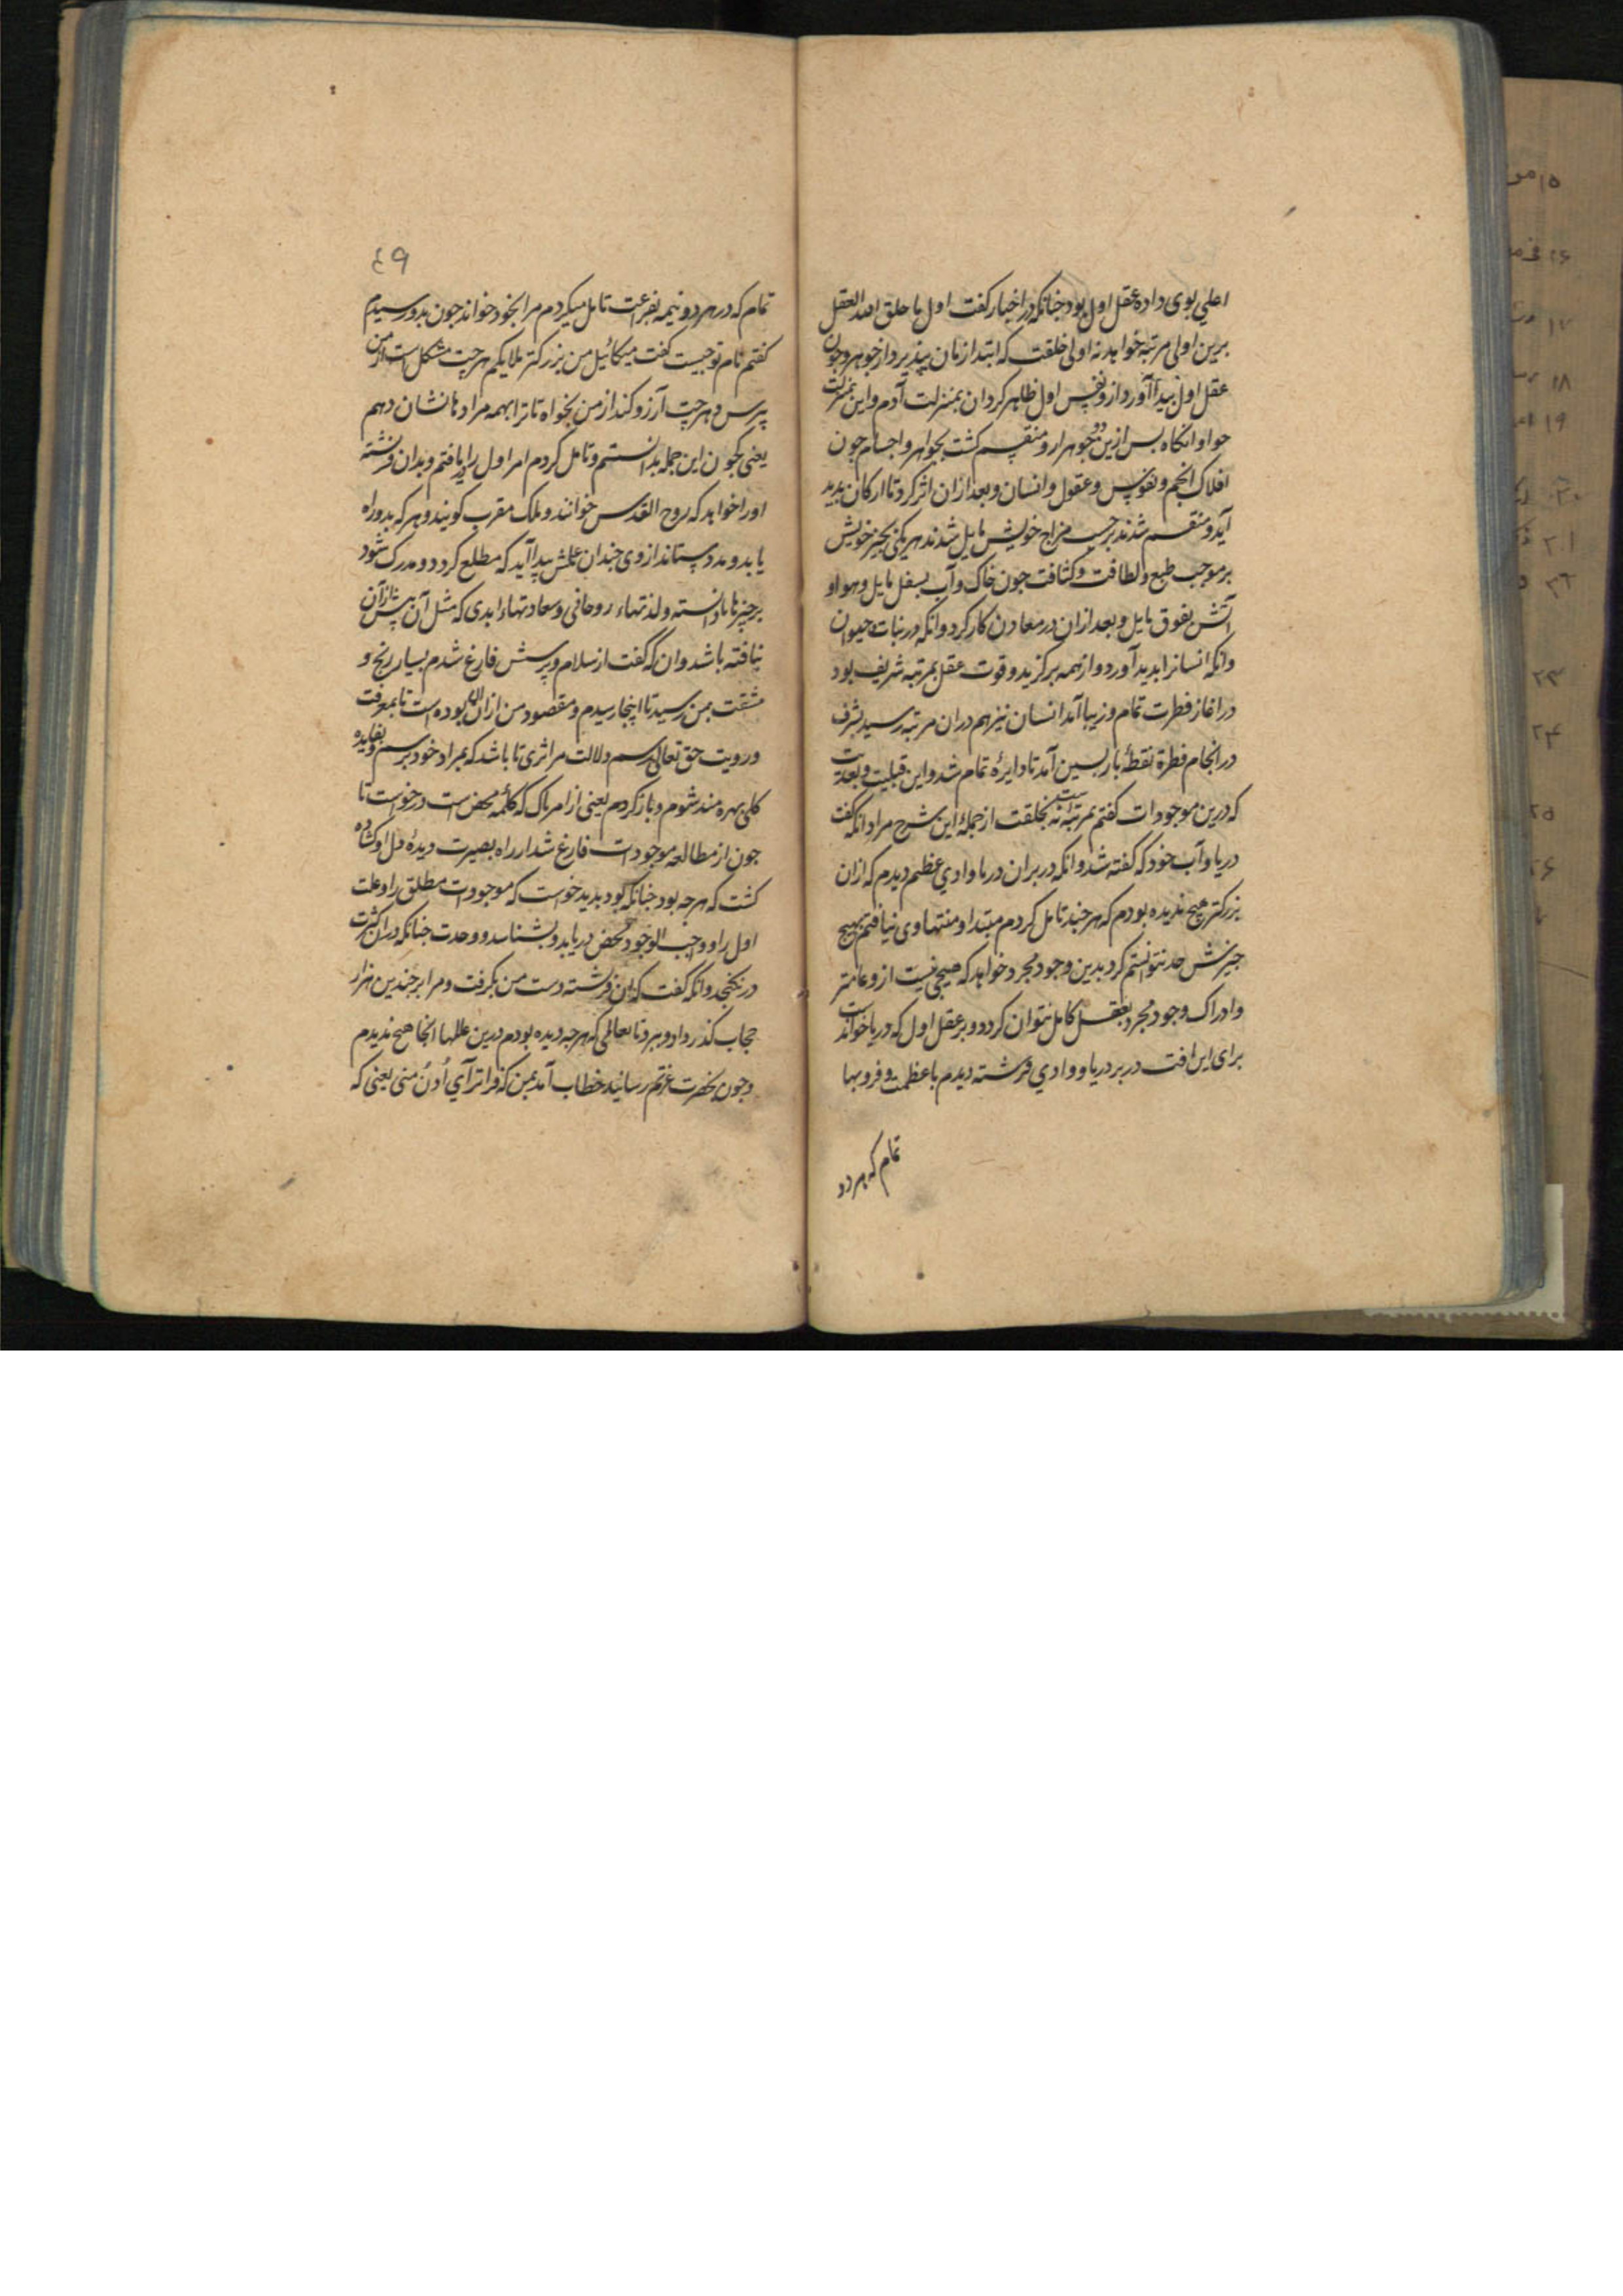 اعلی بوی داده عقل اول بود جنانکه در اخبار کفت اول ما خلق الله العقل
برین اولی مرتبه خواهد نه اولی خلقت که ابتدا زمان بپذیرد از جوهر و جون
عقل اول بیدا آورد از و نفس اول ظاهر کرد آن بمنزلت آدم و این بمنزلت
حوا و انکاه بس ازین دو جوهر ارو منقسم کشت بجواهر و اجسام جون
افلاک و انجم و نفوس و عقول و انسان و بعد ازان اثر کرد تا ارکان بدید
آید و منقسم شدند بر حسب مزاج خویش مایل شدند هر یکی بحیز خویش
بر موجب طبع و لطافت و کثافت جون خاک و آب بسفل مایل و هوا و
آتش بفوق مایل و بعد ازان در معادن کار کرد و انکه در نبات و حیوان
و انکه انسانرا بدید آورد و از همه برکزید و قوت عقل بمرتبه شریف بود
در اغاز فطرت تمام و زیبا آمد انسان نیز هم دران مرتبه رسید بشرف
در انجام فطرة نقطهٔ بازبسین آمد تا دایره تمام شد و این قبلیت و بعدیت
که درین موجودات کفتم بمرتبتست نه بخلقت از جملهٔ این شرح مراد انکه کفت
دریا و آب خود که کفته شد و انکه در بران دریا وادی عظیم دیدم که ازان
بزرکتر هیج ندیده بودم که هر جند تامل کردم مبتدا و منتهاوی نیافتم بهیج
جیزش حد نتوانستم کرد بدین وجود مجرد خواهد که هیجی نیست ازو عامتر
و ادراک وجود مجرد بعقل کامل نتوان کرد و بر عقل اول که دریا خواندست
برای این افت در بر دریا و وادی فرشته دیدم با عظمت و فر و بها
تمام که هر دو
٤٩
تمام که در هر دو نیمه بفراغت تامل میکردم مرا بخود خواند جون بدو رسیدم
کفتم نام تو جیست کفت میکائیل من بزرکتر ملایکم هر جت مشکلست از من
پرس و هر جت آرزو کند از من بخواه تا ترا بهمه مرادها نشان دهم
یعنی کجون این جمله بدانستم و تامل کردم امر اول را یافتم و بدان فرشته
اورا خواهد که روح القدس خوانند و ملک مقرب کویند و هر که بدو راه
یابد و مدد ستاند از وی جندان علمش بیدا آید که مطلع کردد و مدرک شود
بر چیزها نادانسته و لذتهاء روحانی و سعادتهاء ابدی که مثل آن بیش ازآن
نیافته باشد و ان که کفت از سلام و پرسش فارغ شدم بسیار رنج و
مشقت بمن رسید تا اینجا رسیدم و مقصود من ازان بوده است تا بمعرفت
و رویت حق تعالی برسم دلالت مراثری تا باشد که بمراد خود برسم و بفایده
کلی بهره مند شوم و باز کردم یعنی از امر باک که کلمهٔ محض است درخواست تا
جون از مطالعه موجودات فارغ شد از راه بصیرت دیدهٔ دل او کشاده
کشت که هرجه بود جنانکه بود بدید خواست که موجودات مطلق را و علت
اول را و واجب الوجود محض دریابد و بشناسد و وحدت جنانکه دران کثرت
درنکنجد و انکه کفت که ان فرشته دست من بکرفت و مرا بر جندین هزار
حجاب کذر داد و ببرد تا بعالمی که هرجه دیده بودم درین عالمها انجا هیج ندیدم
و جون بحضرت عزتم رسانید خطاب آمد بمن که فراتر آی اُدنُ منی یعنی که